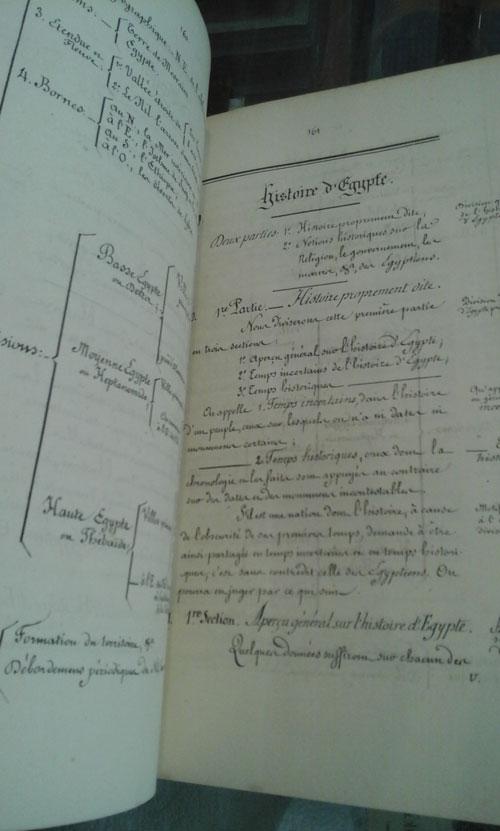 3. Étendue
Fleuve.
Terre de
Égypte
1° Vallée
2° Le Nil
4. Bornes.
au N., la Mer
à l'E.,
au S., l'Éthiopie
à l'O., les déserts de
Basse Égypte
ou Delta;
Moyenne Égypte
ou Heptanomide;
Haute Égypte
ou Thébaïde;
Formation du territoire, &
Débordemens périodiques du
161
Histoire d'Égypte.
Deux parties: 1° Histoire proprement dite;
2° Notions historiques sur la
Religion, le gouvernement, les
mœurs, &c, des Égyptiens.
1re Partie. — Histoire proprement dite.
Nous diviserons cette première partie
en trois sections:
1° Aperçu général sur l'histoire d'Égypte;
2° Temps incertains de l'histoire d'Égypte;
3° Temps historiques
On appelle 1. Temps incertains, dans l'histoire
d'un peuple, ceux sur lesquels on n'a ni dates ni
monumens certains;
2. Temps historiques, ceux dont la
chronologie et les faits sont appuyés au contraire
sur des dates et des monumens incontestables.
S'il est une nation dont l'histoire, à cause
de l'obscurité de ses premiers temps, demande à être
ainsi partagée en temps incertains et en temps histori-
ques, c'est sans contredit celle des Égyptiens. On
pourra en juger par ce qui suit.
1re Section. Aperçu général sur l'histoire d'Égypte.
Quelques données suffiront sur chacun des